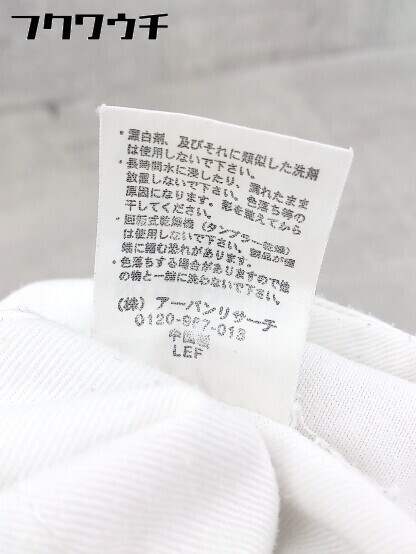 フクワウチ
・漂白剤、及びそれに類似した洗剤
は使用しないで下さい。
・長時間水に浸したり、濡れたまま
放置しないで下さい。色落ち等の
原因になります。形を整えてから
干してください。
・回転式乾燥機（タンブラー乾燥）
は使用しないで下さい。製品が極
端に縮む恐れがあります。
・色落ちする場合がありますので他
の物と一緒に洗わないで下さい。
（株）アーバンリサーチ
0120-967-013
中国製
LEF